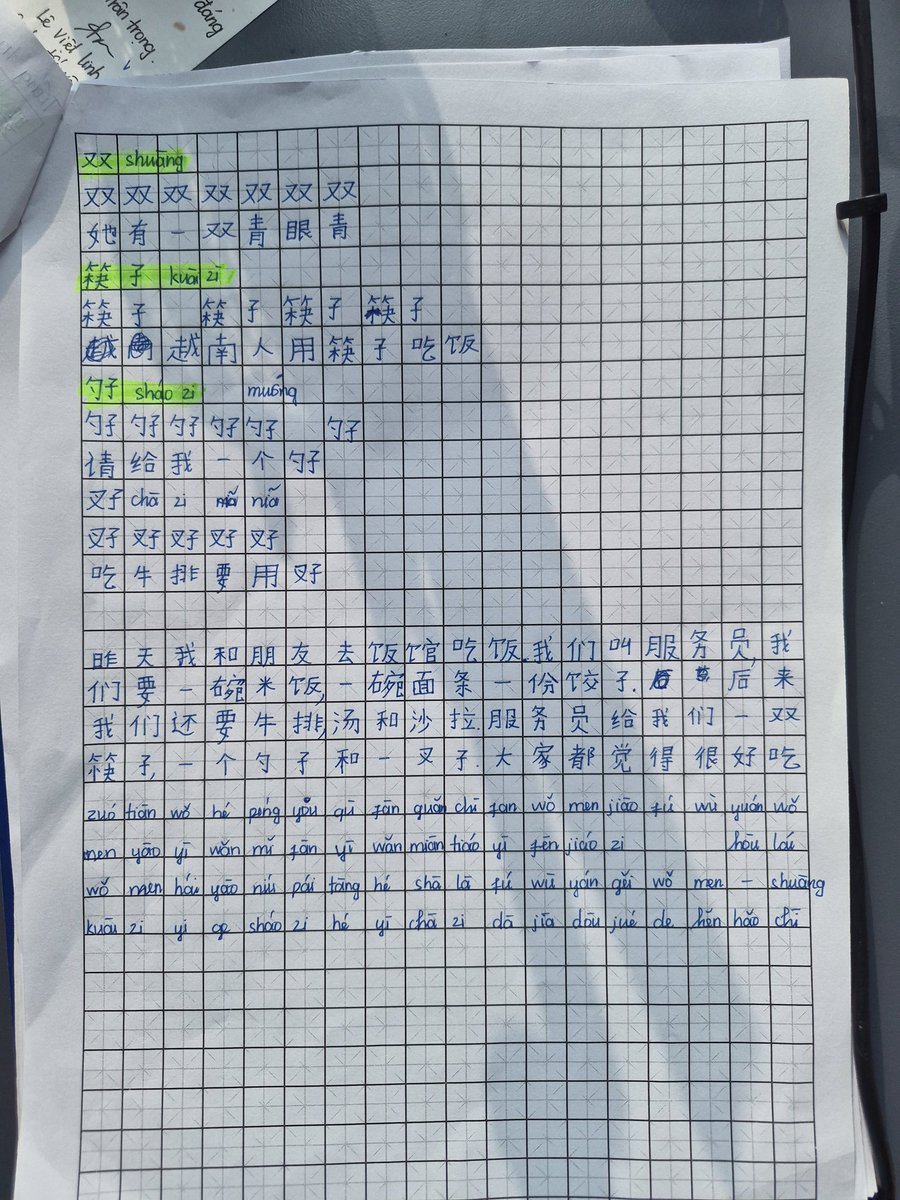 đáng
trân trọng.
Lê Việt Linh
双 shuāng
双 双 双 双 双 双 双
她有一双青眼青
筷子 kuāi zi
筷子 筷子 筷子 筷子
越南人用筷子吃饭
勺子 sháo zi muỗng
勺子 勺子 勺子 勺子 勺子 勺子
请给我一个勺子
叉子 chā zi nĩa
叉子 叉子 叉子 叉子 叉子
吃牛排要用叉子
昨天我和朋友去饭馆吃饭.我们叫服务员,我
们要一碗米饭,一碗面条一份饺子.后来
我们还要牛排,汤和沙拉.服务员给我们一双
筷子,一个勺子和一叉子.大家都觉得很好吃
zuó tiān wǒ hé péng yǒu qū fān guǎn chī fan wǒ men jiāo fú wù yuán wǒ
men yāo yī wǎn mǐ fān yī wǎn miān tiáo yī fēn jiáo zi hōu lái
wǒ men hái yāo niú pái tāng hé shā lā fú wū yán gěi wǒ men – shuāng
kuāi zi yi ge sháo zi hé yī chā zi dā jiā dōu jué de hěn hǎo chī